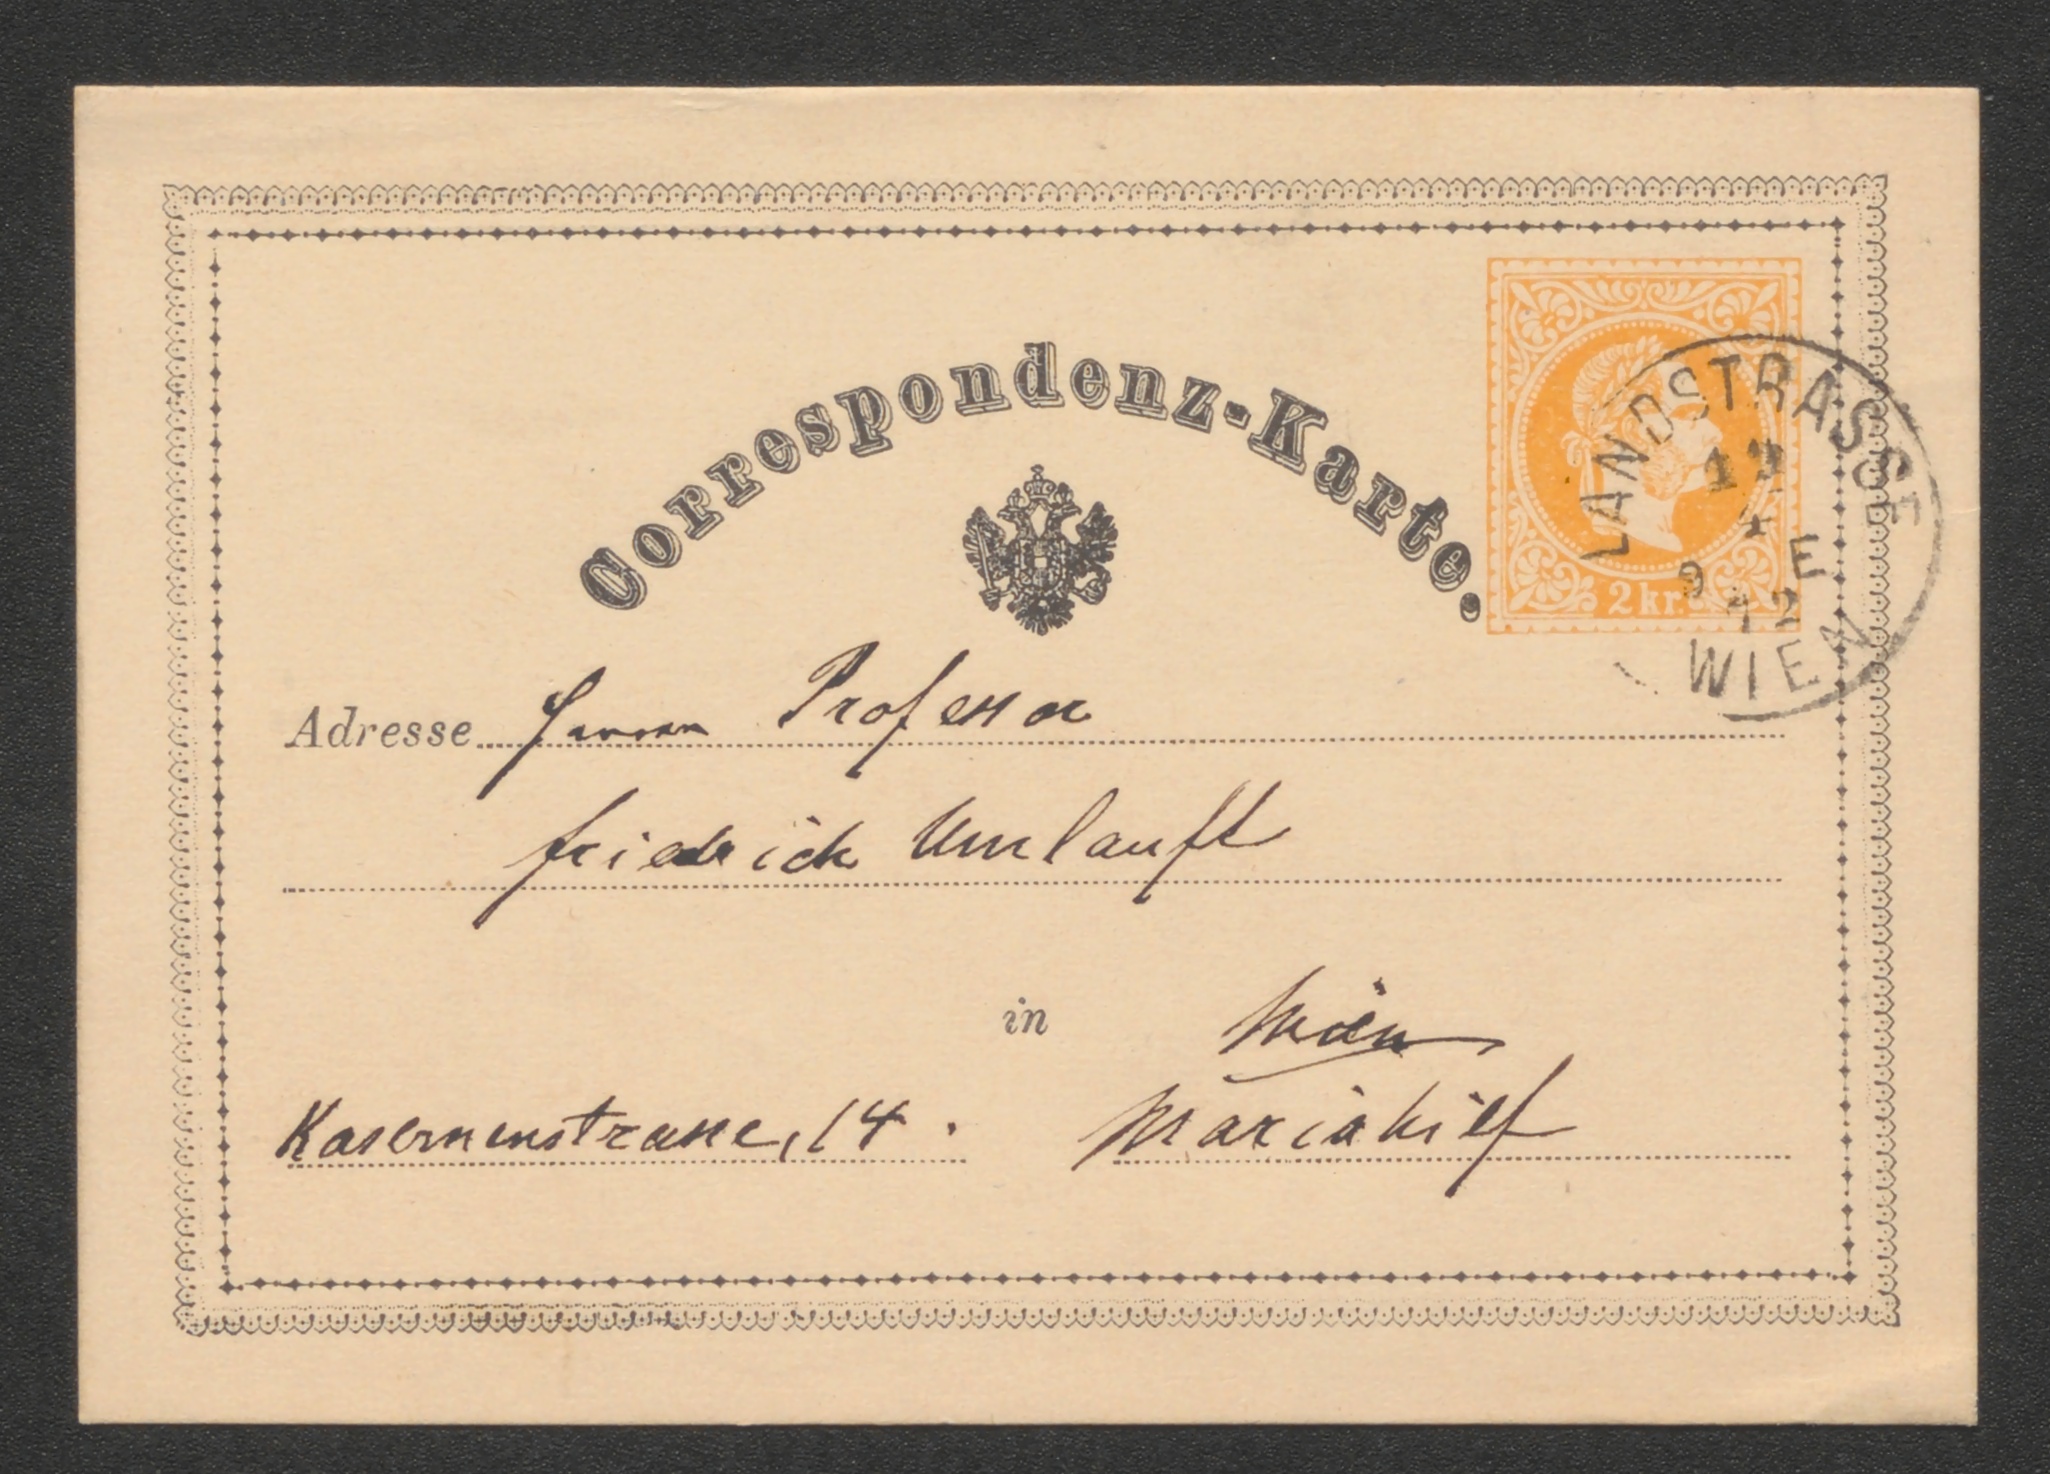 Correspondenz-Karte.
2 kr.
LANDSTRASSE
12
4
9 E
72
WIEN
Adresse Herrn Professor
Friedrich Umlauft
in Wien
Kasernenstrasse, 14. Mariahilf